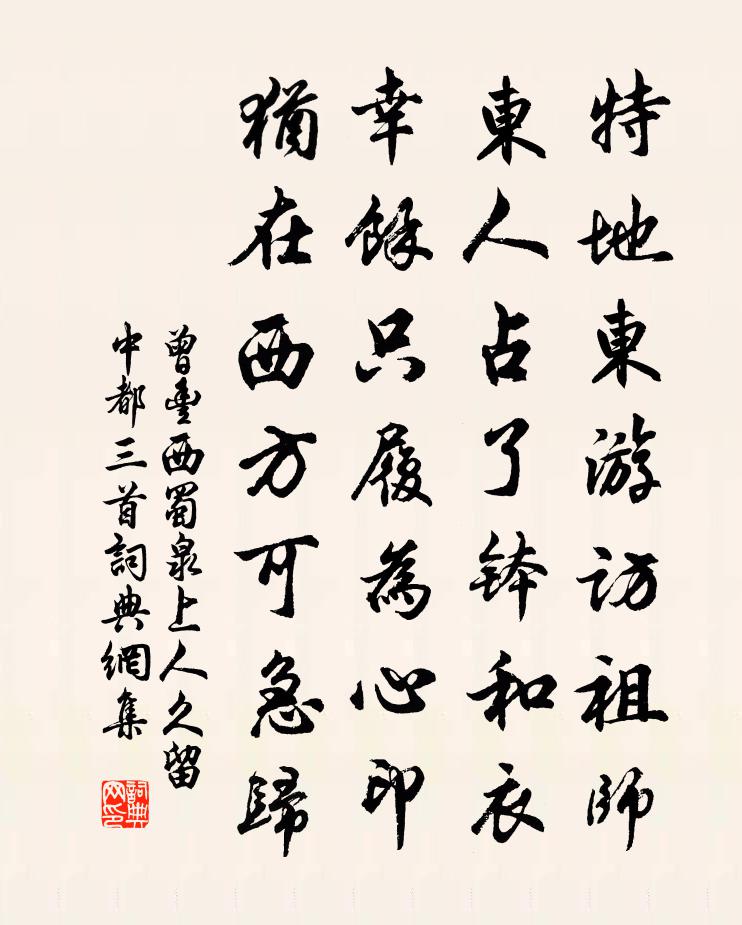 特地東游訪祖師
東人占了鉢和衣
幸餘只履為心印
猶在西方可急歸
曾豐西蜀泉上人久留
中都三首詞典網集
詞典网印